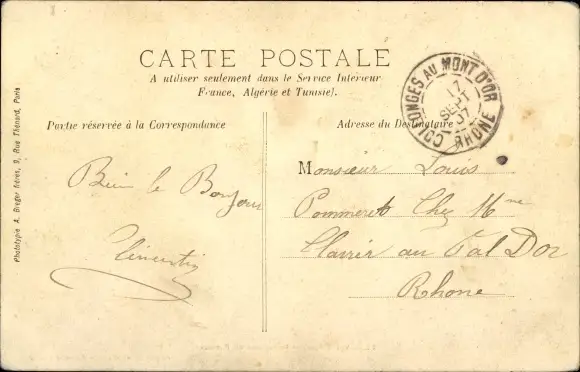 CARTE POSTALE
A utiliser seulement dans le Service Intérieur
France, Algérie et Tunisie).
Partie réservée à la Correspondance
Adresse du Destinataire
COLLONGES AU MONT D'OR
17
SEPT
07
RHONE
Bien le Bonjour
Monsieur Louis
Pommeret Chez Mme
au Val D'Or
Rhone
Phototypie A. Breger frères, 9, Rue Thénard, Paris